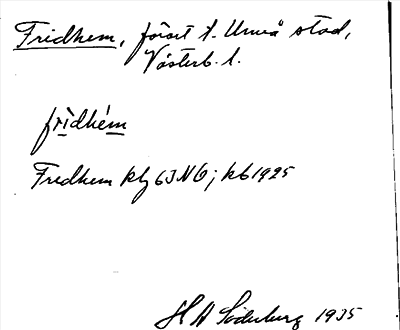 Fridhem, förort t. Umeå stad,
Västerb. l.
fri̲dhem̲
Fredhem kbg 63 NO; kb 1925
H A Söderberg 1935